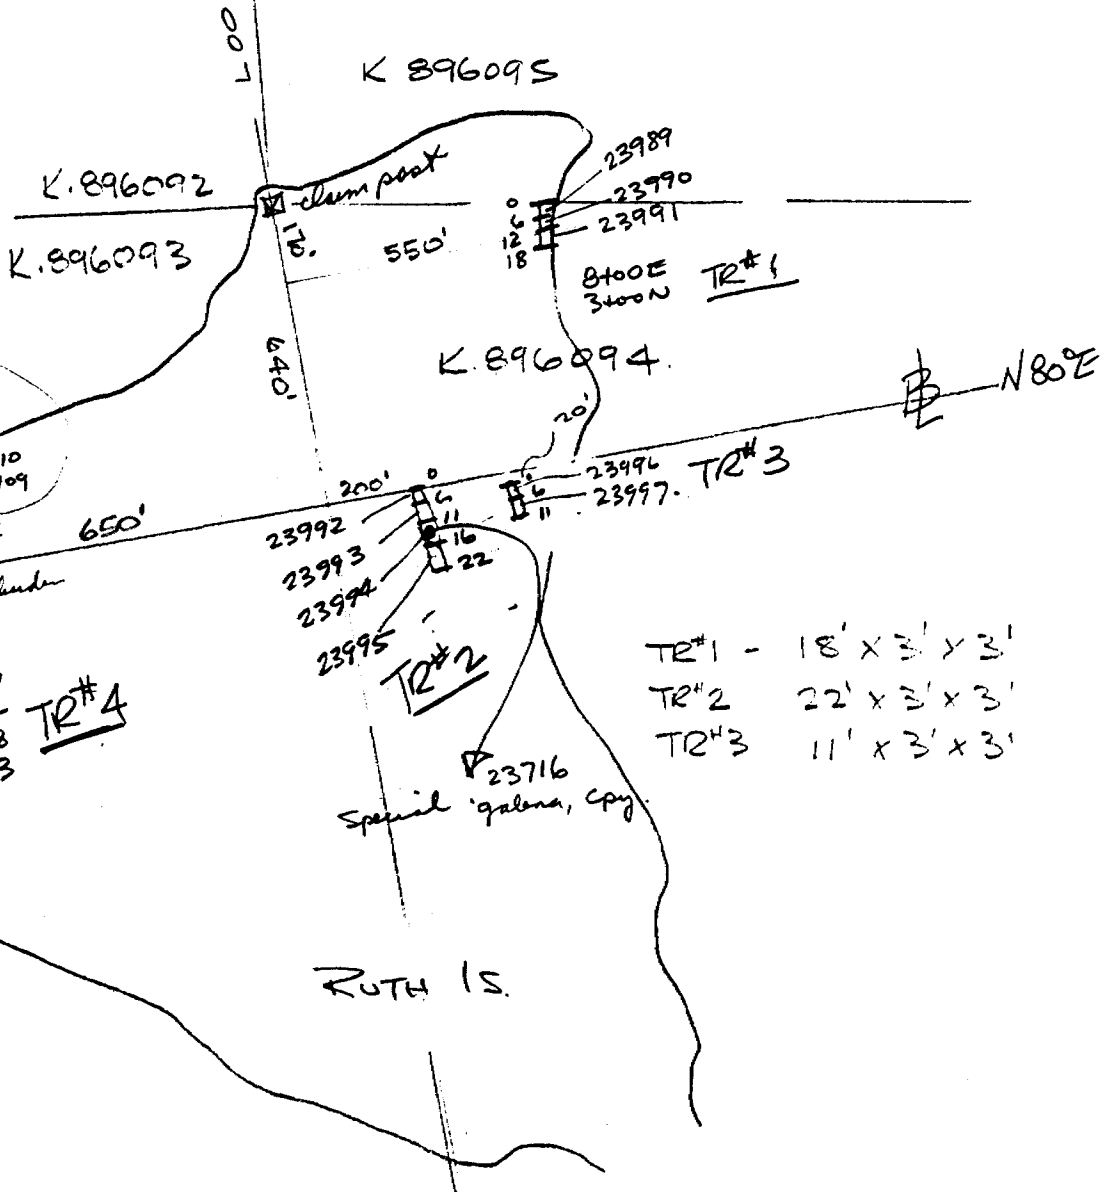 L 00
K 896095
K.896092
claim post
23989
23990
23991
0
6
12
18
K.896093
550'
8+00E
3+00N
TR#1
640'
K.896094.
N80°E
BL
20'
10
09
200'
650'
0
6
11
16
22
0
6
11
23996
23997.
TR#3
23992
23993
23994
23995
TR#2
TR#4
8
3
TR#1 - 18' x 3' x 3'
TR#2 22' x 3' x 3'
TR#3 11' x 3' x 3'
23716
Special galena, cpy.
RUTH IS.